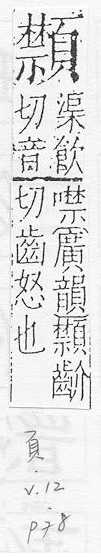 䫴
渠飮
切音
噤廣韻䫴齘
切齒怒也
頁.
v.12
p78